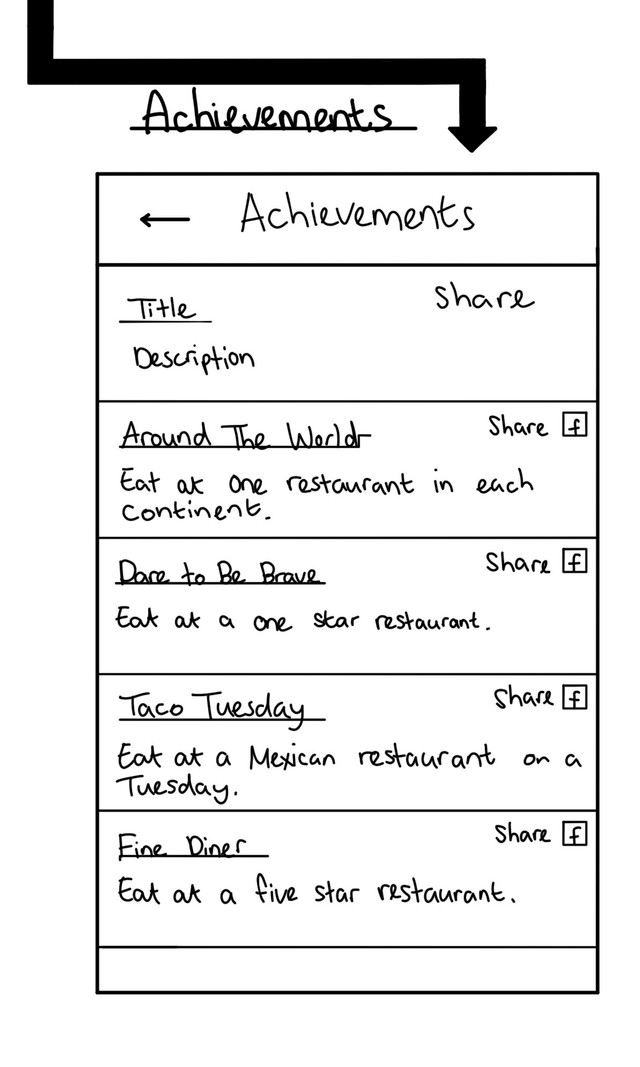 Achievements
← Achievements
Title Share
Description
Around The World Share f
Eat at one restaurant in each
continent.
Dare to Be Brave Share f
Eat at a one star restaurant.
Taco Tuesday Share f
Eat at a Mexican restaurant on a
Tuesday.
Fine Diner Share f
Eat at a five star restaurant.